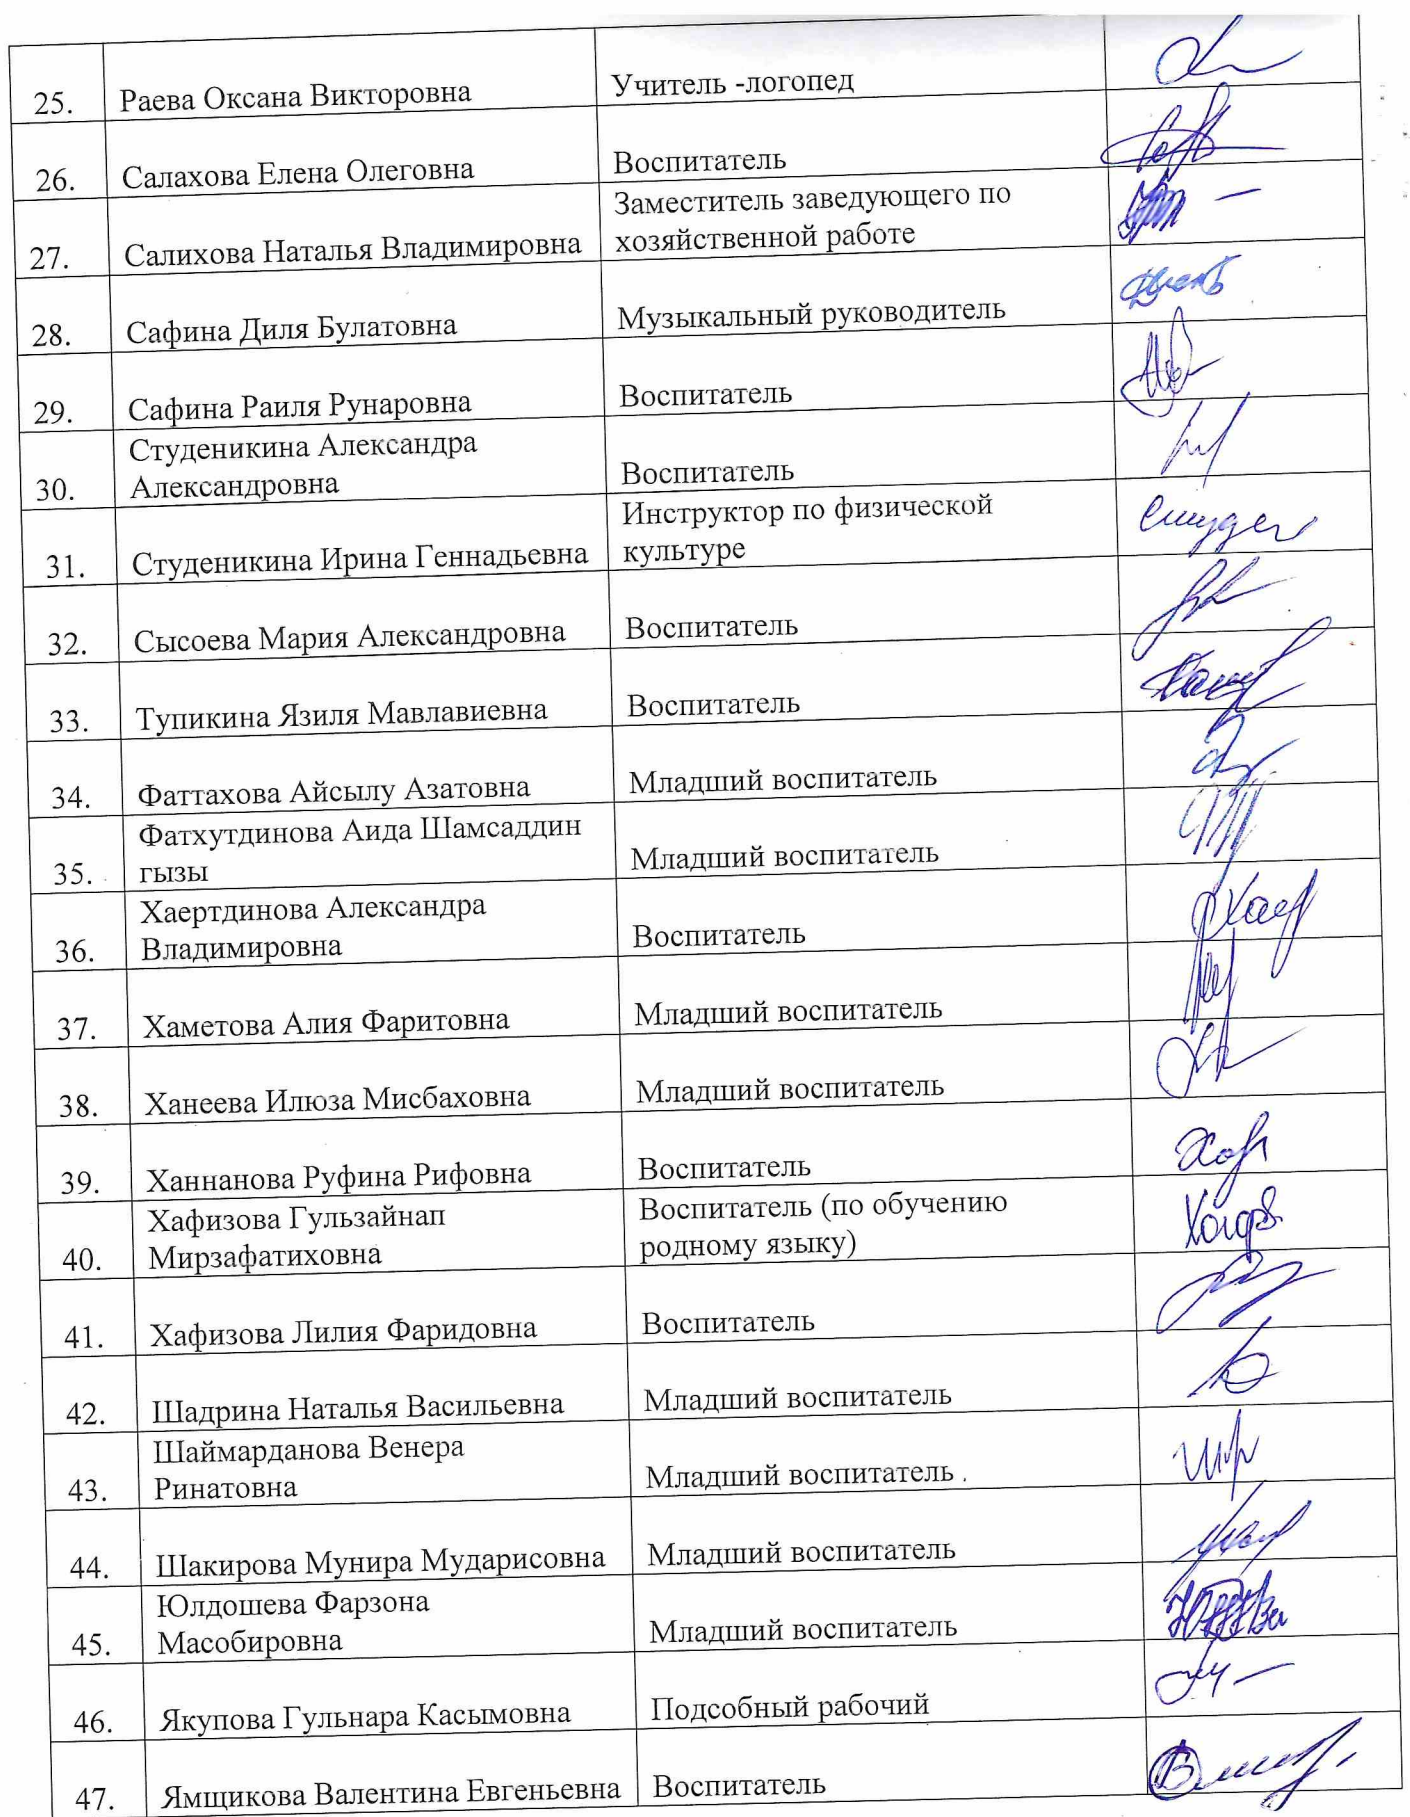 25. Раева Оксана Викторовна Учитель -логопед
26. Салахова Елена Олеговна Воспитатель
Заместитель заведующего по
27. Салихова Наталья Владимировна хозяйственной работе
28. Сафина Диля Булатовна Музыкальный руководитель
29. Сафина Раиля Рунаровна Воспитатель
Студеникина Александра
30. Александровна Воспитатель
Инструктор по физической
31. Студеникина Ирина Геннадьевна культуре
32. Сысоева Мария Александровна Воспитатель
33. Тупикина Язиля Мавлавиевна Воспитатель
34. Фаттахова Айсылу Азатовна Младший воспитатель
Фатхутдинова Аида Шамсаддин
35. гызы Младший воспитатель
Хаертдинова Александра
36. Владимировна Воспитатель
37. Хаметова Алия Фаритовна Младший воспитатель
38. Ханеева Илюза Мисбаховна Младший воспитатель
39. Ханнанова Руфина Рифовна Воспитатель
Хафизова Гульзайнап Воспитатель (по обучению
40. Мирзафатиховна родному языку)
41. Хафизова Лилия Фаридовна Воспитатель
42. Шадрина Наталья Васильевна Младший воспитатель
Шаймарданова Венера
43. Ринатовна Младший воспитатель
44. Шакирова Мунира Мударисовна Младший воспитатель
Юлдошева Фарзона
45. Масобировна Младший воспитатель
46. Якупова Гульнара Касымовна Подсобный рабочий
47. Ямщикова Валентина Евгеньевна Воспитатель